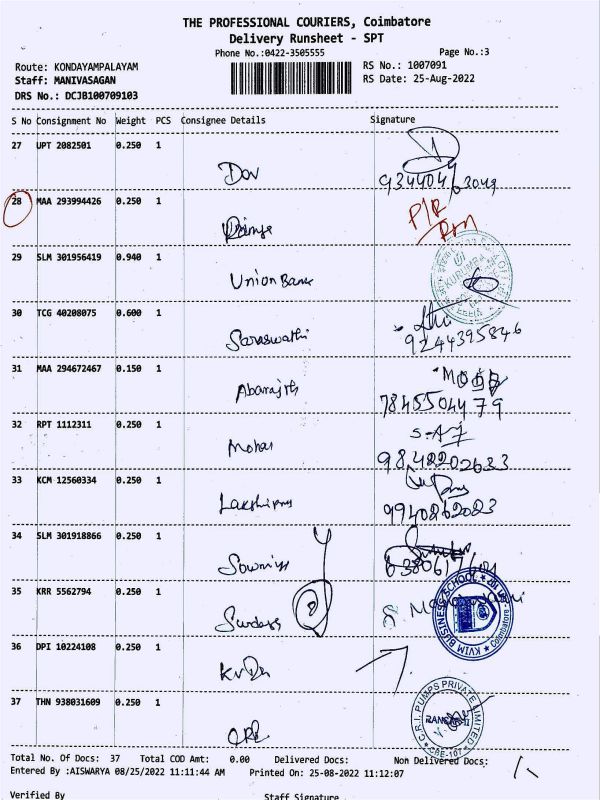 THE PROFESSIONAL COURIERS, Coimbatore
Delivery Runsheet - SPT
Phone No.:0422-3505555 Page No.:3
Route: KONDAYAMPALAYAM RS No.: 1007091
Staff: MANIVASAGAN RS Date: 25-Aug-2022
DRS No.: DCJB100709103
S No Consignment No Weight PCS Consignee Details Signature
27 UPT 2082501 0.250 1
28 MAA 293994426 0.250 1
29 SLM 301956419 0.940 1
Union Bank
30 TCG 40208075 0.600 1
Saraswathi
9244395846
31 MAA 294672467 0.150 1
Abarajith
7845504479
32 RPT 1112311 0.250 1
Mohan
9842202633
33 KCM 12560334 0.250 1
9940262023
34 SLM 301918866 0.250 1
Sowmiya
35 KRR 5562794 0.250 1
KVIM BUSINESS SCHOOL
Coimbatore
36 DPI 10224108 0.250 1
37 THN 938031609 0.250 1
C.R.I. PUMPS PRIVATE LIMITED
CBE-107
Total No. Of Docs: 37 Total COD Amt: 0.00 Delivered Docs: Non Delivered Docs:
Entered By :AISWARYA 08/25/2022 11:11:44 AM Printed On: 25-08-2022 11:12:07
Verified By Staff Signature